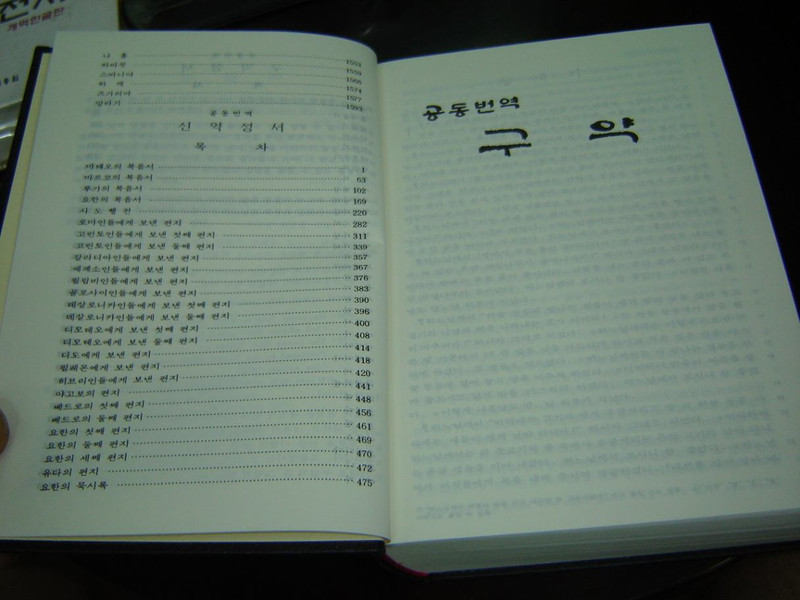 전서
개역한글판
나 훔 1553
하바꾹 1559
스바니야 1566
하 깨 1574
즈가리야 1577
말라기 1593
공동번역
신 약 성 서
목 차
마태오의 복음서 1
마르코의 복음서 63
루가의 복음서 102
요한의 복음서 169
사 도 행 전 220
로마인들에게 보낸 편지 282
고린토인들에게 보낸 첫째 편지 311
고린토인들에게 보낸 둘째 편지 339
갈라디아인들에게 보낸 편지 357
에페소인들에게 보낸 편지 367
필립비인들에게 보낸 편지 376
골로사이인들에게 보낸 편지 383
데살로니카인들에게 보낸 첫째 편지 390
데살로니카인들에게 보낸 둘째 편지 396
디모테오에게 보낸 첫째 편지 400
디모테오에게 보낸 둘째 편지 408
디도에게 보낸 편지 414
필레몬에게 보낸 편지 418
히브리인들에게 보낸 편지 420
야고보의 편지 441
베드로의 첫째 편지 448
베드로의 둘째 편지 456
요한의 첫째 편지 461
요한의 둘째 편지 469
요한의 세째 편지 470
유다의 편지 472
요한의 묵시록 475
공동번역
구 약